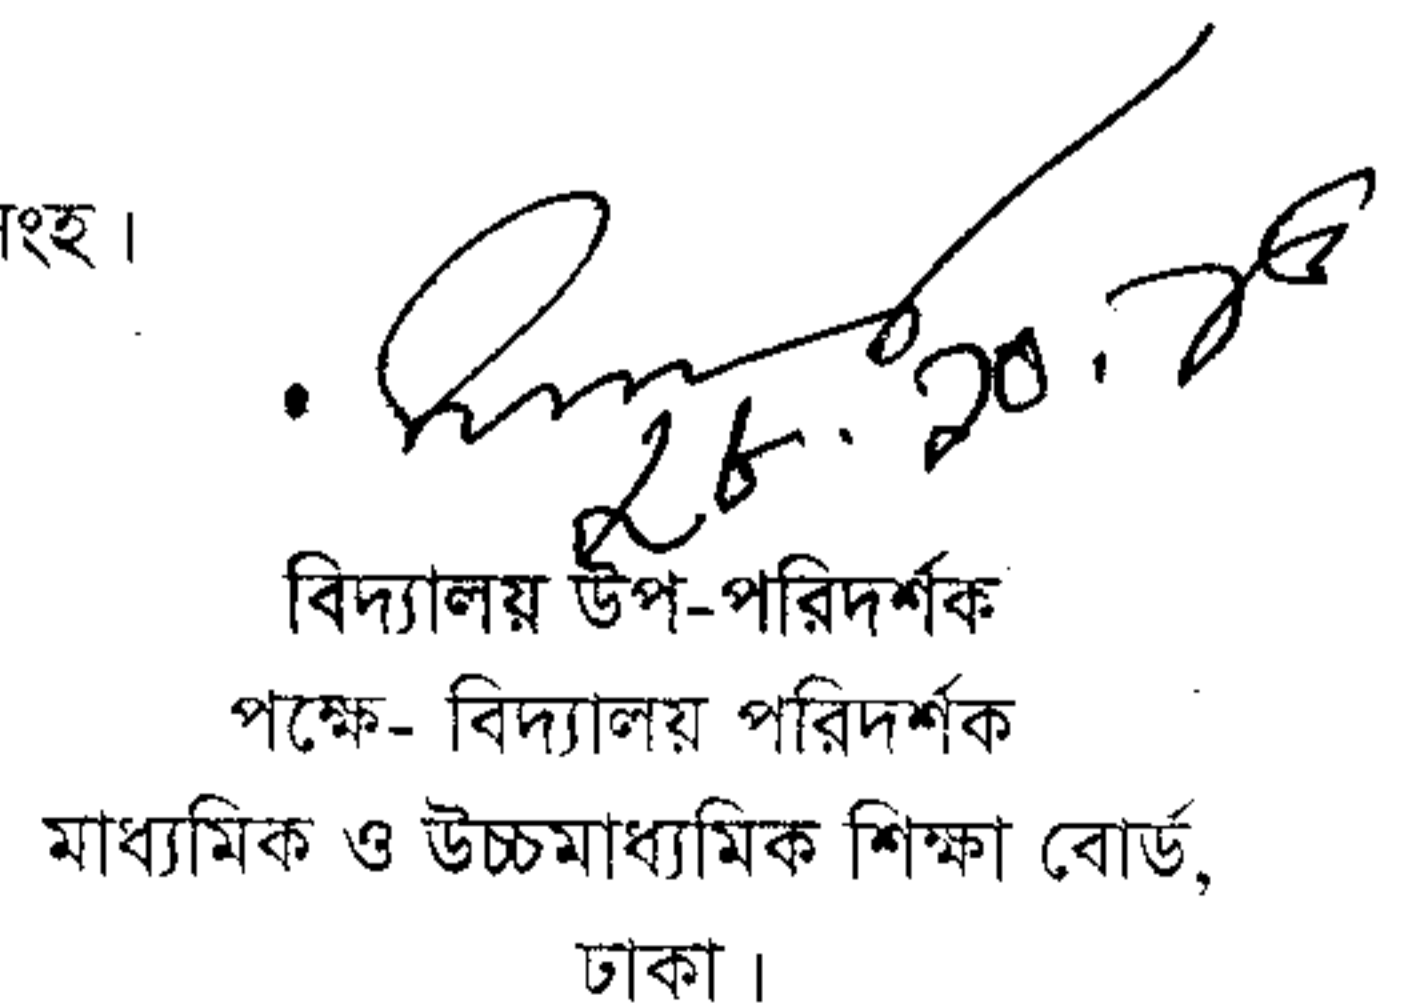 ংহ।
২৮.১০.৯৬
বিদ্যালয় উপ-পরিদর্শক
পক্ষে- বিদ্যালয় পরিদর্শক
মাধ্যমিক ও উচ্চমাধ্যমিক শিক্ষা বোর্ড,
ঢাকা।